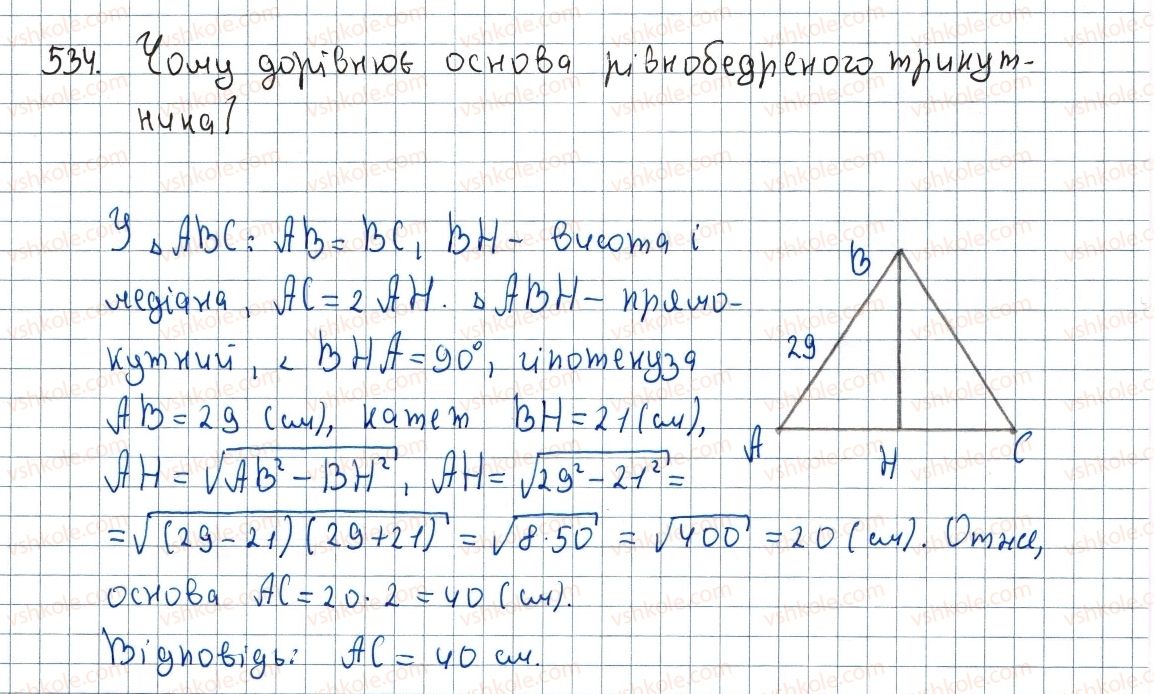 534. Чому дорівнює основа рівнобедреного трикут-
ника?
У △ABC: AB = BC, BH - висота і
медіана, AC = 2 AH. △ABH - прямо-
кутний, ∠BHA = 90°, гіпотенуза
AB = 29 (см), катет BH = 21 (см),
AH = √(AB² - BH²), AH = √(29² - 21²) =
= √((29-21)(29+21)) = √(8·50) = √400 = 20 (см). Отже,
основа AC = 20·2 = 40 (см).
Відповідь: AC = 40 см.
B
29
A
H
C
vshkole.com